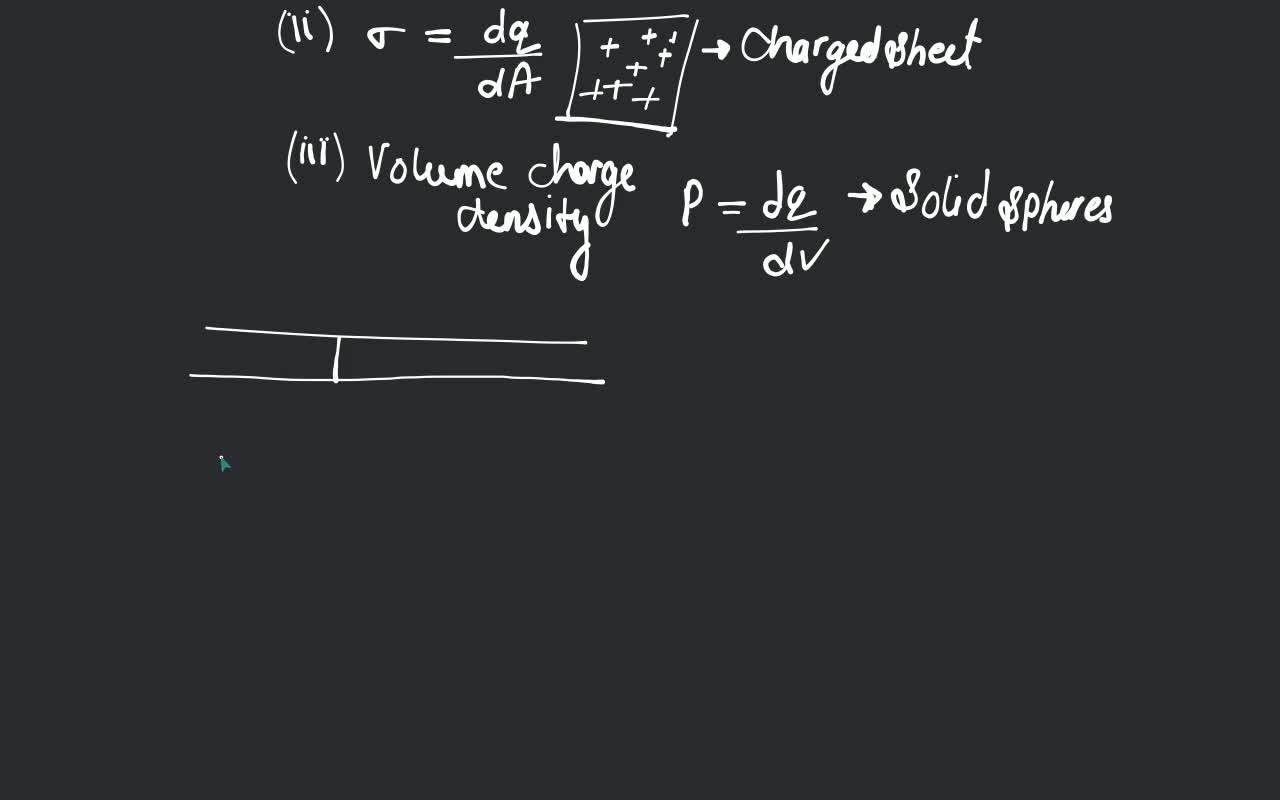 (ii) σ = dq/dA → Charged sheet
(iii) Volume charge
density ρ = dq/dV → Solid spheres